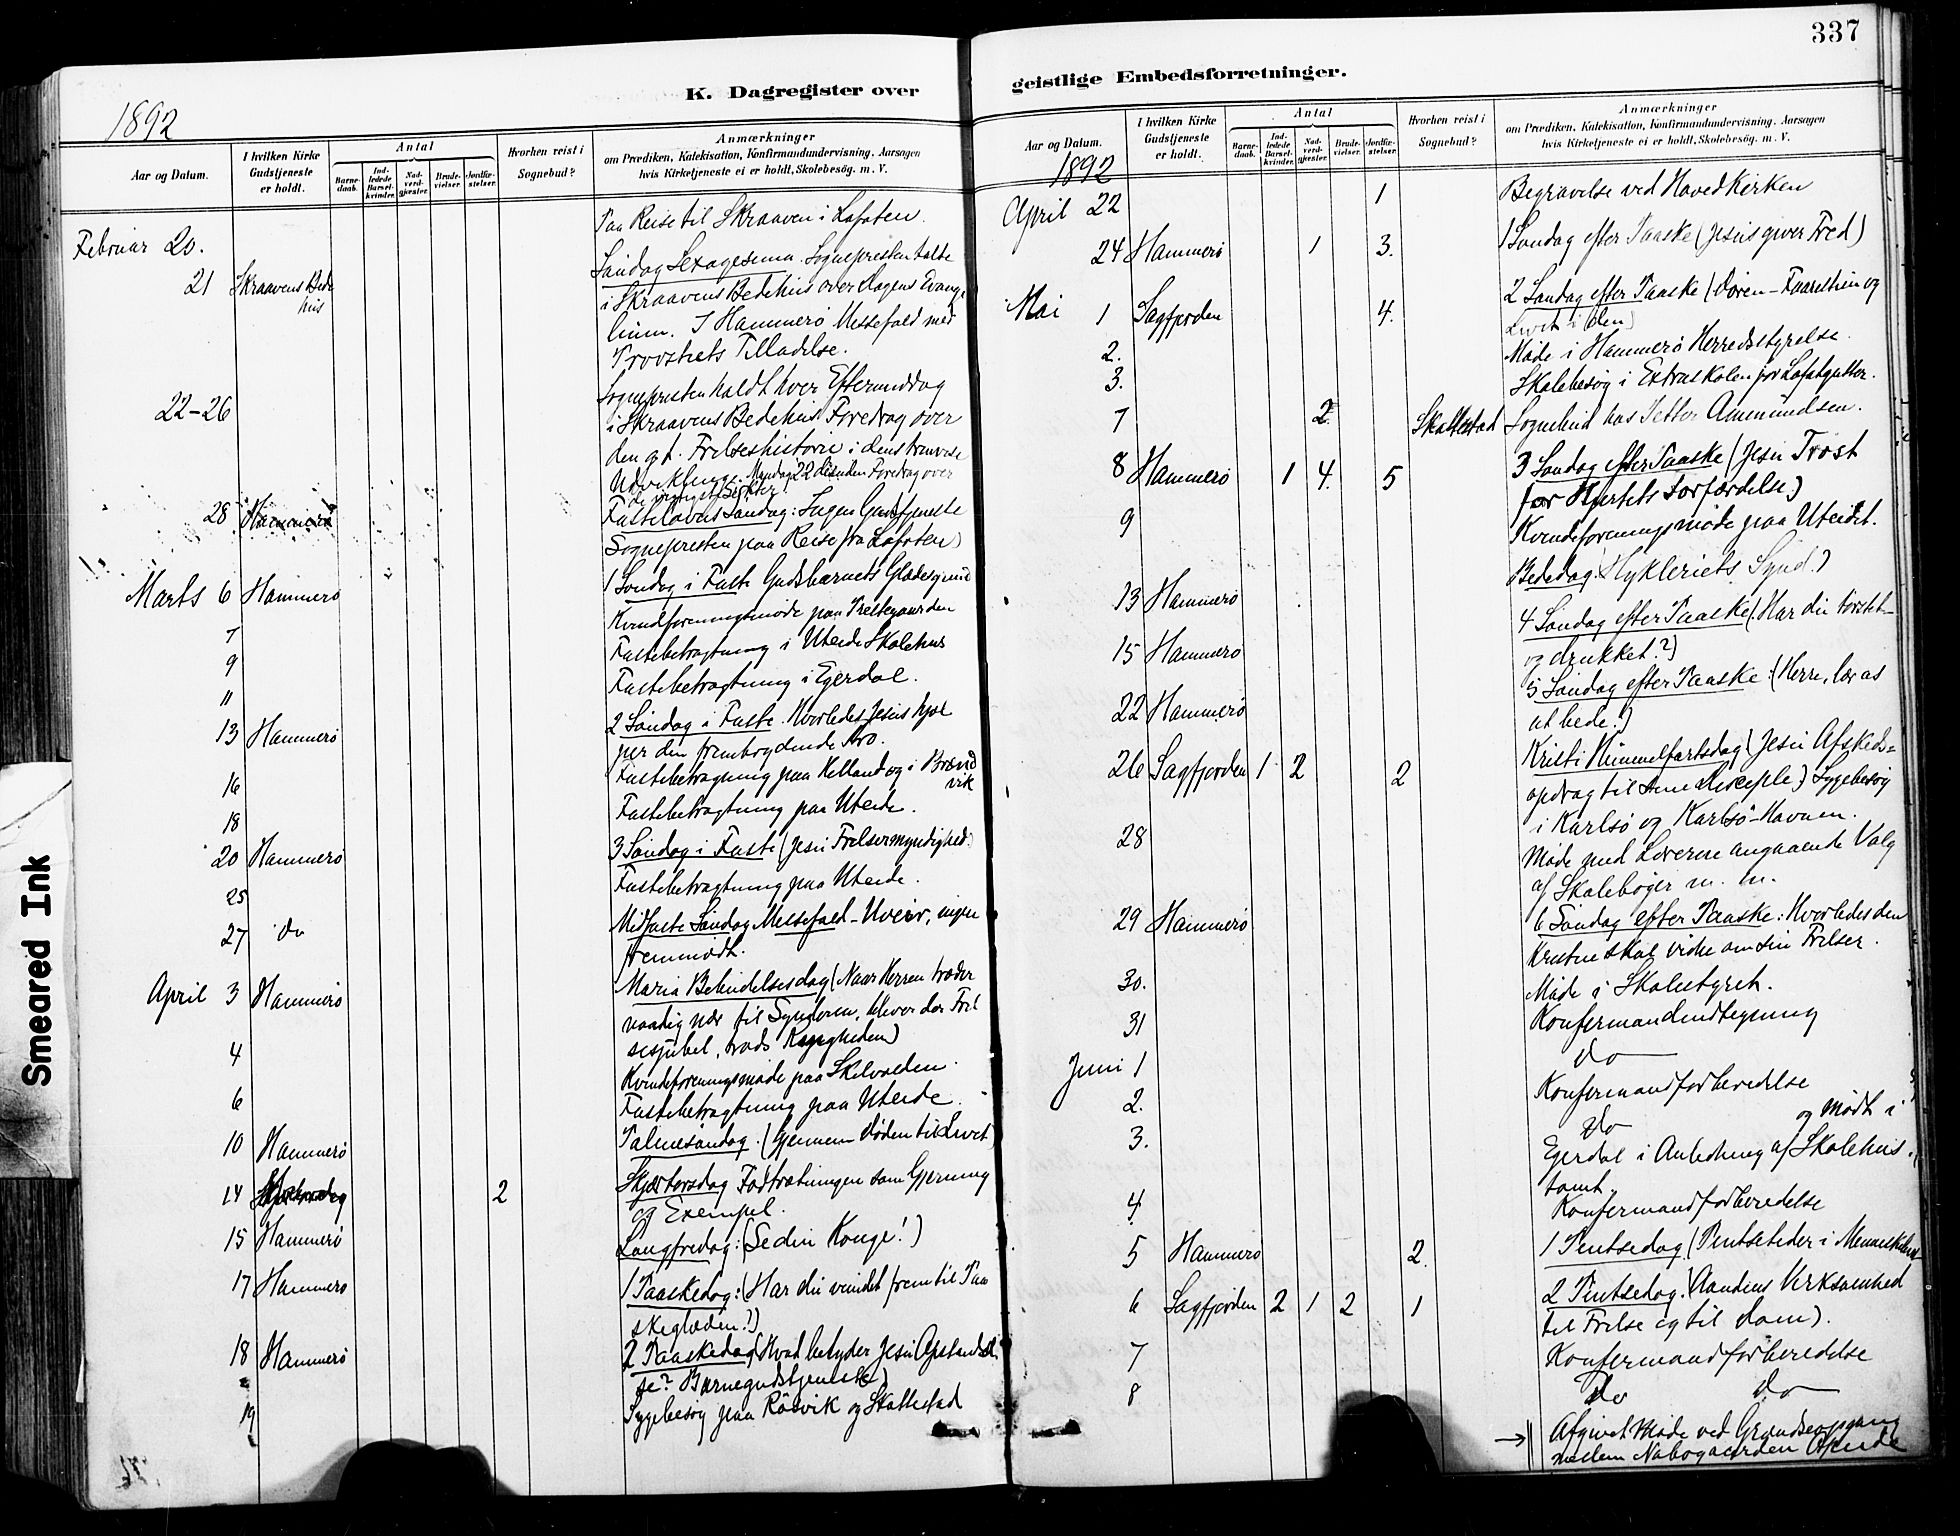 337
K. Dagregister over
geistlige Embedsforretninger.
1892
Aar og Datum.
I hvilken Kirke Gudstjeneste er holdt.
Antal
Barne-daab.
Ind-ledede Barsel-kvinder.
Nad-verd-gjester.
Brude-vielser.
Jordfæ-stelser.
Hvorhen reist i Sognebud?
Anmærkninger
om Prædiken, Katekisation, Konfirmandundervisning, Aarsagen
hvis Kirketjeneste ei er holdt, Skolebesøg. m. V.
Februar 20. Paa Reise til Skraaven i Lofoten.
21 Skraavens Bede hus Søndag Sexagesima. Sognepresten talte
i Skraavens Bedehus over Dagens Evange
lium. I Hammerø Messefald med
Provstiets Tilladelse.
22-26 Sognepresten holdt hver Eftermiddag
i Skraavens Bedehus Foredrag over
den Frelseshistorie i dens trinvise
Udvikling. Mandag 22 desuden Foredrag over
de Sekter.
28 Hammerø Fastelavns Søndag: Ingen Gudstjeneste
Sognepresten paa Reise fra Lofoten)
Marts 6 Hammerø 1 Søndag i Faste Gudsbarnets Glædesgrund
7 Kvindeforeningsmøde paa Prestegaarden
9 Fastebetragtning i Uteide Skolehus
11 Fastebetragtning i Egerdal.
13 Hammerø 2 Søndag i Faste. Hvorledes Jesus hjæl
per den frembrydende Tro.
16 Fastebetragtning paa Helland og i Brænd
vik
18 Fastebetragtning paa Uteide.
20 Hammerø 3 Søndag i Faste (Jesu Frelsermyndighed)
25 Fastebetragtning paa Uteide.
27 do Midfaste Søndag Messefald - Uveir, ingen
fremmødt.
April 3 Hammerø Maria Bebudelsesdag (Naar Herren træder
naadig nær til Synderen, bliver der Frel
sesjubel, trods Ringheden)
4 Kvindeforeningsmøde paa Skilvolden.
6 Fastebetragtning paa Uteide.
10 Hammerø Palmesøndag. (Gjennem Døden til Livet)
14 2 Skjærtorsdag Fodtvætningen som Gjerning
og Exempel.
15 Hammerø Langfredag: (Se din Konge!)
17 Hammerø 1 Paaskedag: (Har du vundet frem til Paa
skeglæden?)
18 Hammerø 2 Paaskedag (Hvad betyder Jesu Opstandel
se? Barnegudstjeneste)
19 Sygebesøg paa Røsvik og Skottestad
Aar og Datum.
1892
I hvilken Kirke Gudstjeneste er holdt.
Antal
Barne-daab.
Ind-ledede Barsel-kvinder.
Nad-verd-gjester.
Brude-vielser.
Jordfæ-stelser.
Hvorhen reist i Sognebud?
Anmærkninger
om Prædiken, Katekisation, Konfirmandundervisning, Aarsagen
hvis Kirketjeneste ei er holdt, Skolebesøg. m. V.
April 22 1 Begravelse ved Hovedkirken
24 Hammerø 1 3. 1 Søndag efter Paaske (Jesus giver Fred)
Mai 1 Sagfjorden 4. 2 Søndag efter Paaske (Døren - Faarestien og
Livet i den)
2. Møde i Hammerø Herredsstyrelse.
3. Skolebesøg i Extraskolen for Lofotgutter.
7 2 Skottestad Sognebud hos Petter Ammundsen.
8 Hammerø 1 4. 5 3 Søndag efter Paaske (Jesu Trøst
for Hjertets Forfærdelse)
9 Kvindeforeningsmøde paa Uteidet.
13 Hammerø Bededag. Hykleriets Synd.)
15 Hammerø 4 Søndag efter Paaske (Har du tørstet
og drukket?)
22 Hammerø 5 Søndag efter Paaske: (Herre, lær os
at bede.)
26 Sagfjorden 1 2 2 Kristi Himmelfartsdag (Jesu Afskeds=
opdrag til sine Disciple.) Sygebesøg
i Karlsø og Karlsø-Havnen.
28 Møde med Lærerne angaaende Valg
af Skolebøger m. m.
29 Hammerø 6 Søndag efter Paaske: Hvorledes den
Kristne skal vidne om sin Frelser.
30. Møde i Skolestyret.
31 Konfermandindtegning
Juni 1 do
2. Konfermandforberedelse
3. Do og mødt i
Egerdal i Anledning af Skolehus-
tomt.
4. Konfermandforberedelse
5 Hammerø 2. 1 Pintsedag (Pintsetider i Menneskelivet
6 Sagfjorden 2 1 2 1 2 Pintsedag. (Aandens Virksomhed
til Frelse og til Dom).
7 Konfermandforberedelse
8 Do do
→ Afgivet Møde ved Grændseopgang
mellem Nabogaarden
Smeared Ink